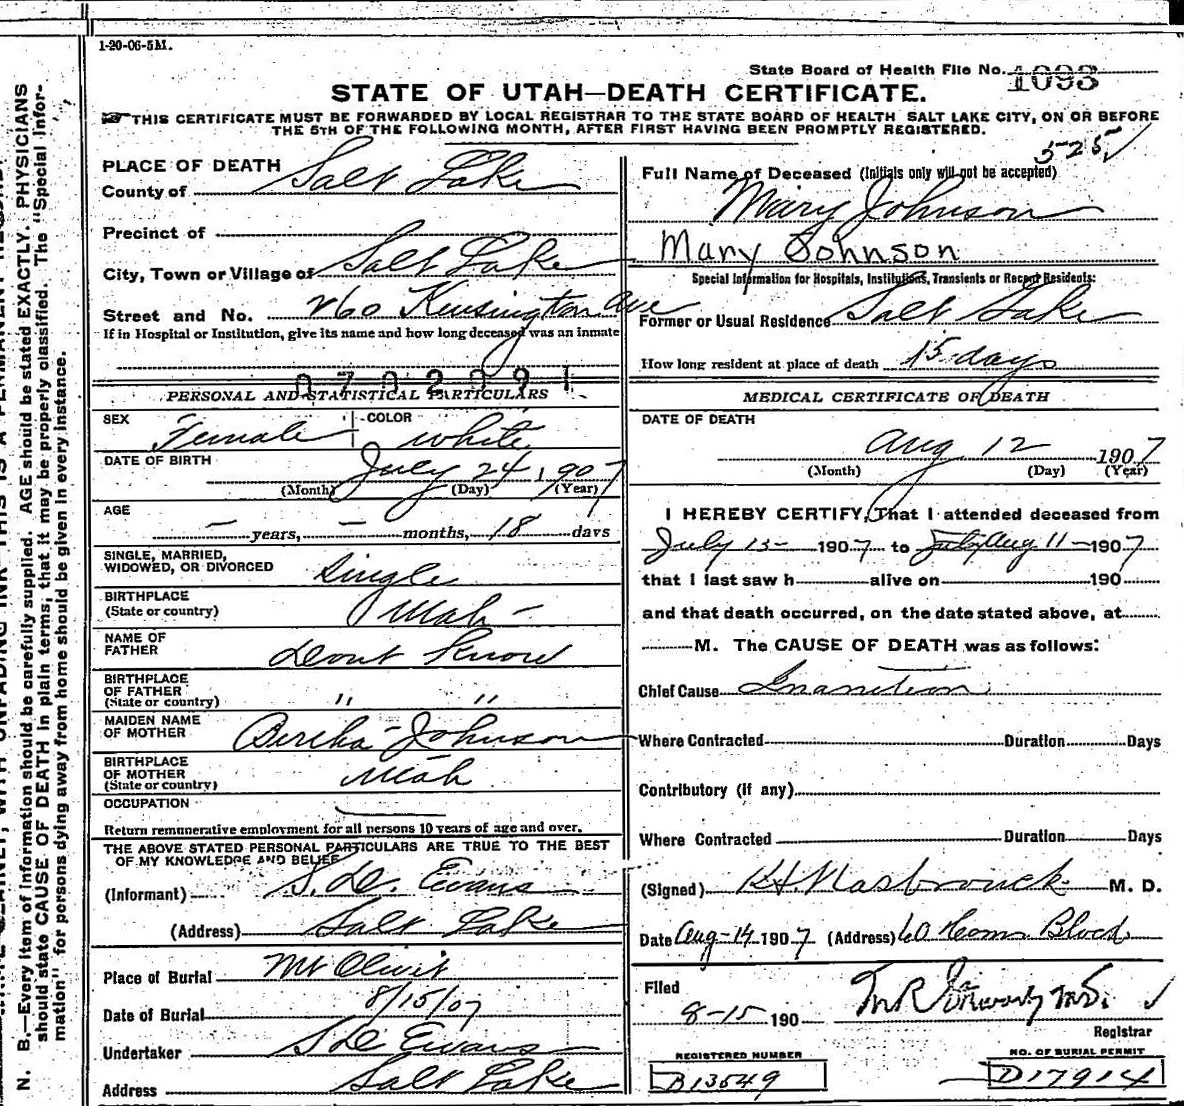 1-20-06-5M.
State Board of Health File No. 1093
STATE OF UTAH—DEATH CERTIFICATE.
THIS CERTIFICATE MUST BE FORWARDED BY LOCAL REGISTRAR TO THE STATE BOARD OF HEALTH SALT LAKE CITY, ON OR BEFORE
THE 5TH OF THE FOLLOWING MONTH, AFTER FIRST HAVING BEEN PROMPTLY REGISTERED.
525
PLACE OF DEATH
County of Salt Lake
Precinct of
City, Town or Village of Salt Lake
Street and No. 260 Kensington Ave
If in Hospital or Institution, give its name and how long deceased was an inmate
070209
PERSONAL AND STATISTICAL PARTICULARS
SEX Female COLOR White
DATE OF BIRTH July 24, 1907
(Month) (Day) (Year)
AGE
— years, — months, 18 days
SINGLE, MARRIED,
WIDOWED, OR DIVORCED Single
BIRTHPLACE
(State or country) Utah —
NAME OF
FATHER Dont Know
BIRTHPLACE
OF FATHER
(State or country) " "
MAIDEN NAME
OF MOTHER Bertha Johnson
BIRTHPLACE
OF MOTHER
(State or country) Utah
OCCUPATION
Return remunerative employment for all persons 10 years of age and over.
THE ABOVE STATED PERSONAL PARTICULARS ARE TRUE TO THE BEST
OF MY KNOWLEDGE AND BELIEF
(Informant) S. De. Evans
(Address) Salt Lake
Place of Burial Mt Olivit
Date of Burial 8/15/07
Undertaker S De Evans
Address Salt Lake
Full Name of Deceased (Initials only will not be accepted)
Mary Johnson
Mary Johnson
Special Information for Hospitals, Institutions, Transients or Recent Residents:
Former or Usual Residence Salt Lake
How long resident at place of death 15 days
MEDICAL CERTIFICATE OF DEATH
DATE OF DEATH
Aug 12 1907
(Month) (Day) (Year)
I HEREBY CERTIFY, That I attended deceased from
July 15 — 1907 to July Aug 11 — 1907
that I last saw h alive on 190
and that death occurred, on the date stated above, at
M. The CAUSE OF DEATH was as follows:
Chief Cause Inanition
Where Contracted Duration Days
Contributory (if any)
Where Contracted Duration Days
(Signed) Hasbrouck M. D.
Date Aug-14 1907 (Address) 60 Coms Block
Filed
8-15 190
Registrar
REGISTERED NUMBER
B13549
NO. OF BURIAL PERMIT
D17914
N. B.—Every item of information should be carefully supplied. AGE should be stated EXACTLY. PHYSICIANS
should state CAUSE OF DEATH in plain terms, that it may be properly classified. The "Special Infor-
mation" for persons dying away from home should be given in every instance.